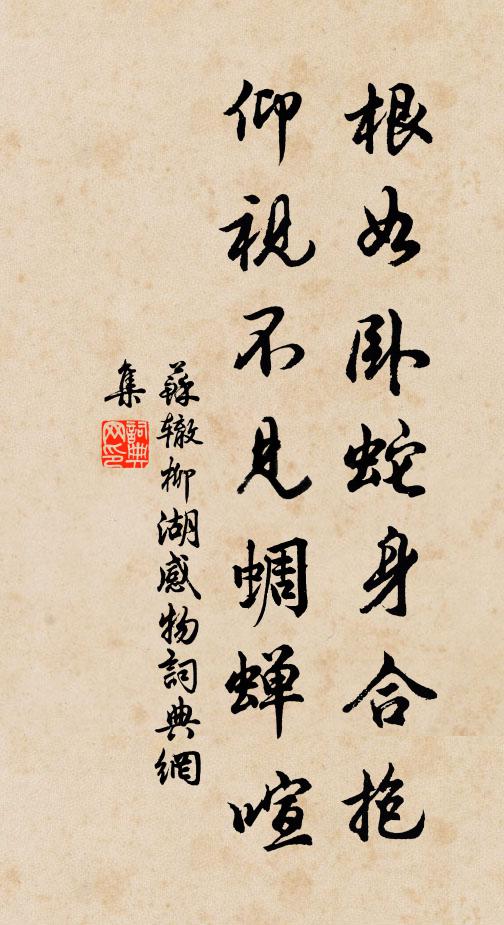 根如卧蛇身合抱
仰视不见蜩蝉喧
蘇辙柳湖感物詞典網
集
詞典
网印